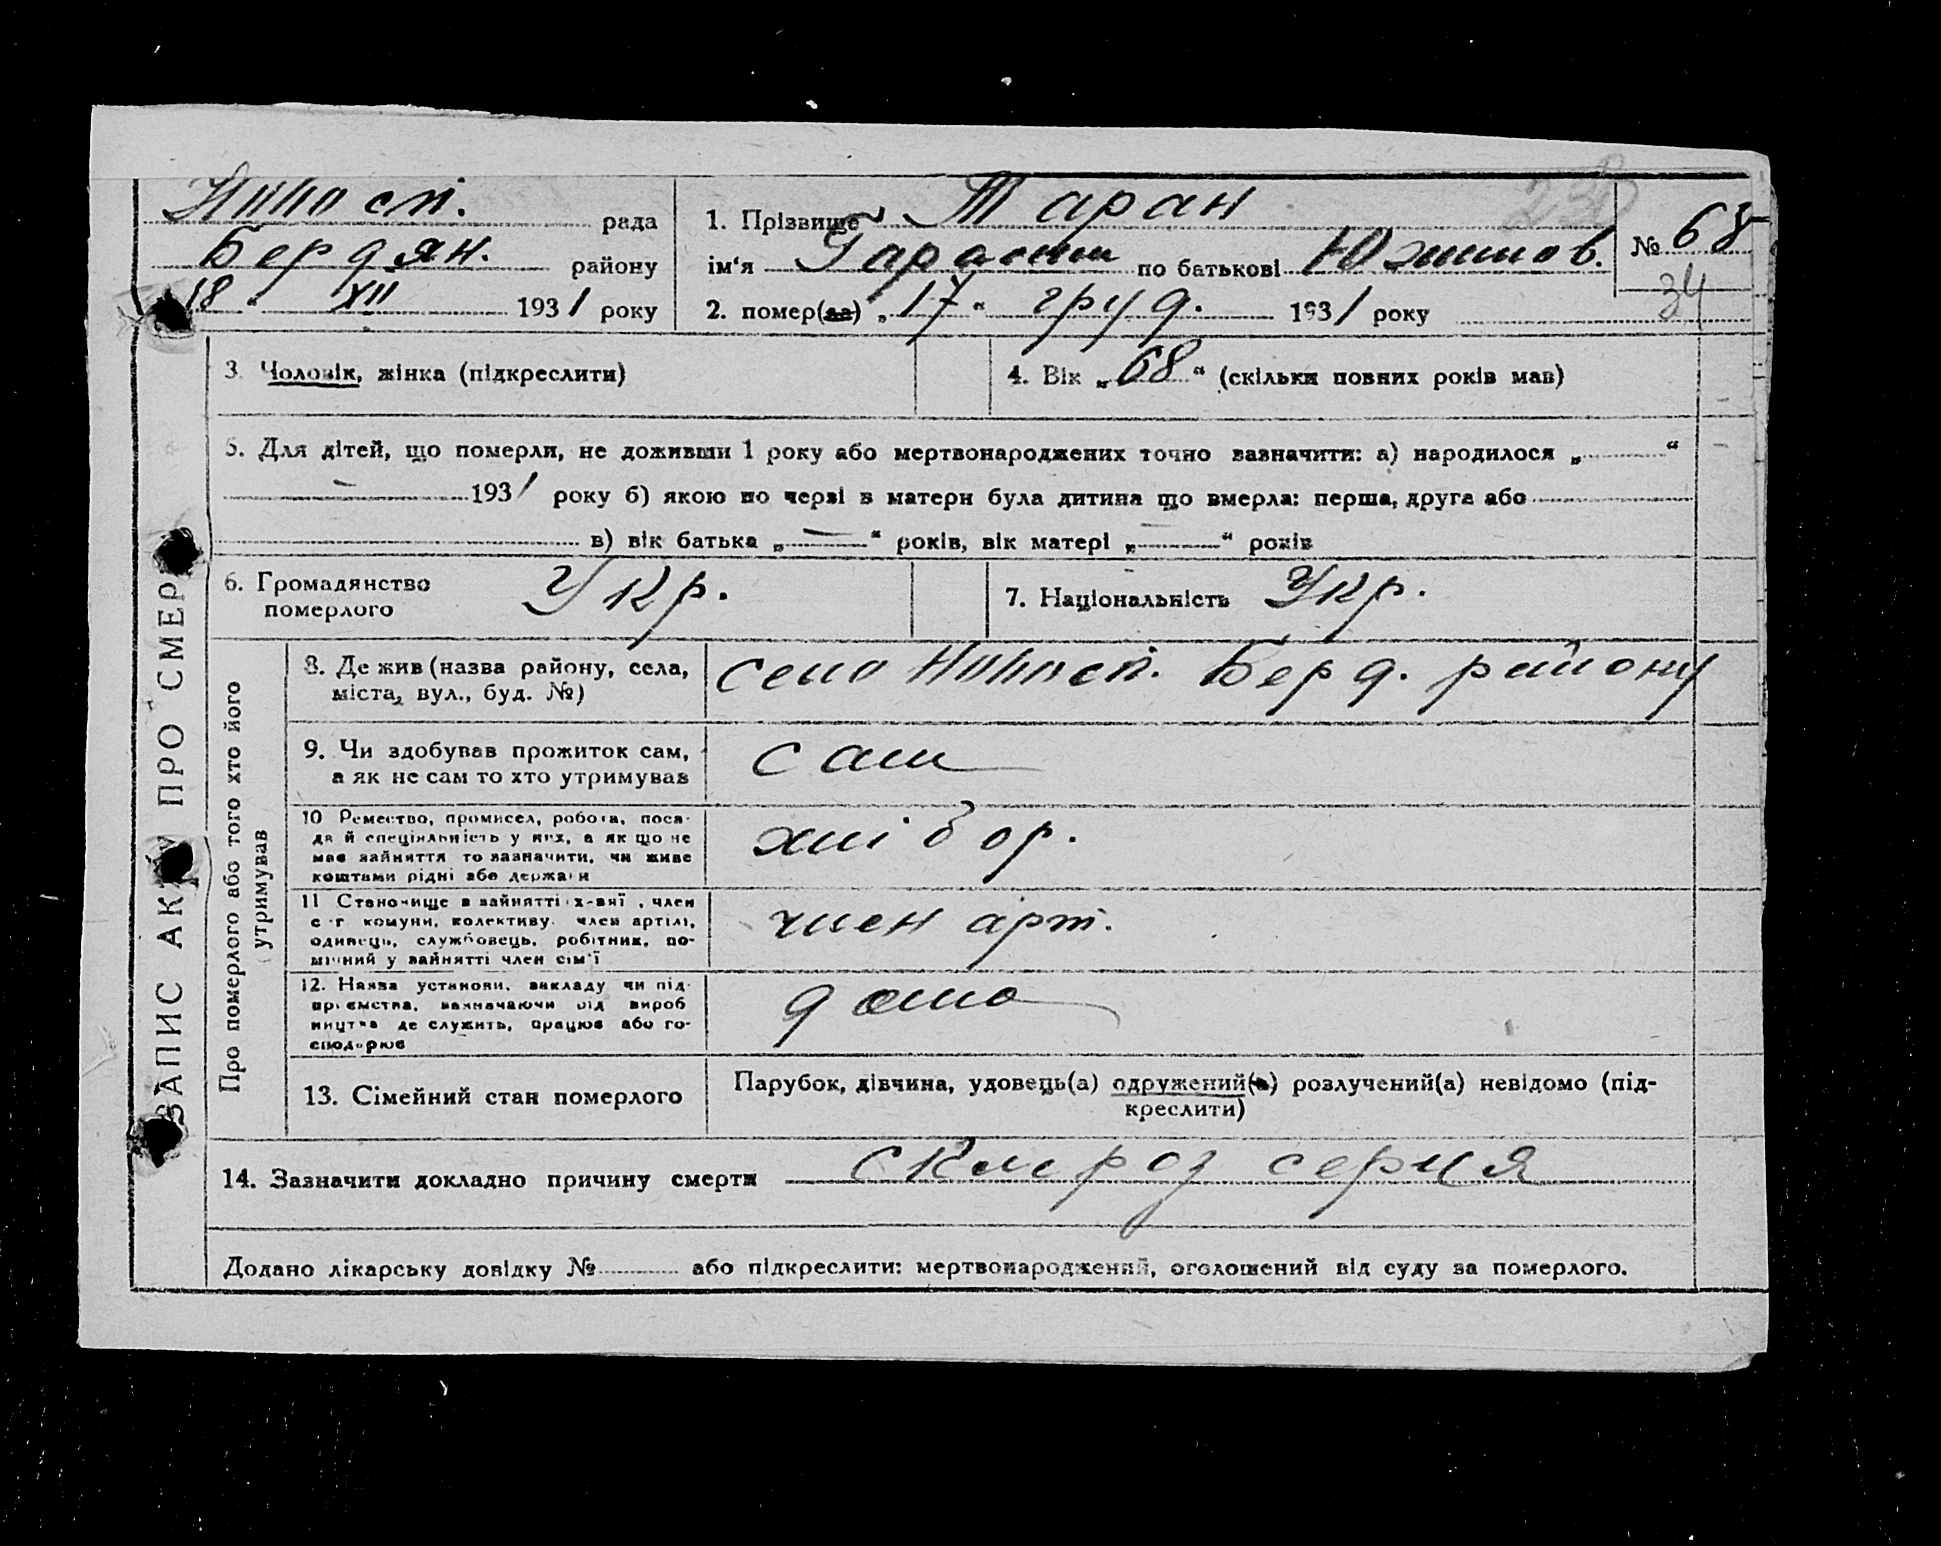 рада
1. Прізвище Таран
238
№ 68
Бердян. району
ім‘я Гарасим по батькові
34
18 “ XII 1931 року
2. помер(ла) „ 17 “ груд. 1931 року
ЗАПИС АКТУ ПРО СМЕР
3. Чоловік, жінка (підкреслити)
4. Вік „ 68 “ (скільки повних років мав)
5. Для дітей, що померли, не доживши 1 року або мертвонароджених точно зазначити: а) народилося „ “
1931 року б) якою по черзі в матери була дитина що вмерла: перша, друга або
в) вік батька „ — “ років, вік матері „ “ років
6. Громадянство померлого Укр.
7. Національність Укр.
Про померлого або того хто його утримував
8. Де жив (назва району, села,
міста, вул., буд. №)
село Берд. району
9. Чи здобував прожиток сам,
а як не сам то хто утримував
сам
10 Ремество, промисел, робота, поса-
да й спеціяльність у них, а як що не
має зайняття то зазначити, чи живе
коштами рідні або держави
хлібор.
11 Становище в зайнятті х-вні, член
с-г комуни, колективу, член артілі,
одинець, службовець, робітник, по-
мічний у зайнятті член сім‘ї
член арт.
12. Назва установи, закладу чи під-
приємства, зазначаючи від вироб
ництва де служить, працює або го-
сподарює
дома
13. Сімейний стан померлого
Парубок, дівчина, удовець(а) одружений(а) розлучений(а) невідомо (під-
креслити)
14. Зазначити докладно причину смерти склероз серця
Додано лікарську довідку № або підкреслити: мертвонароджений, оголошений від суду за померлого.